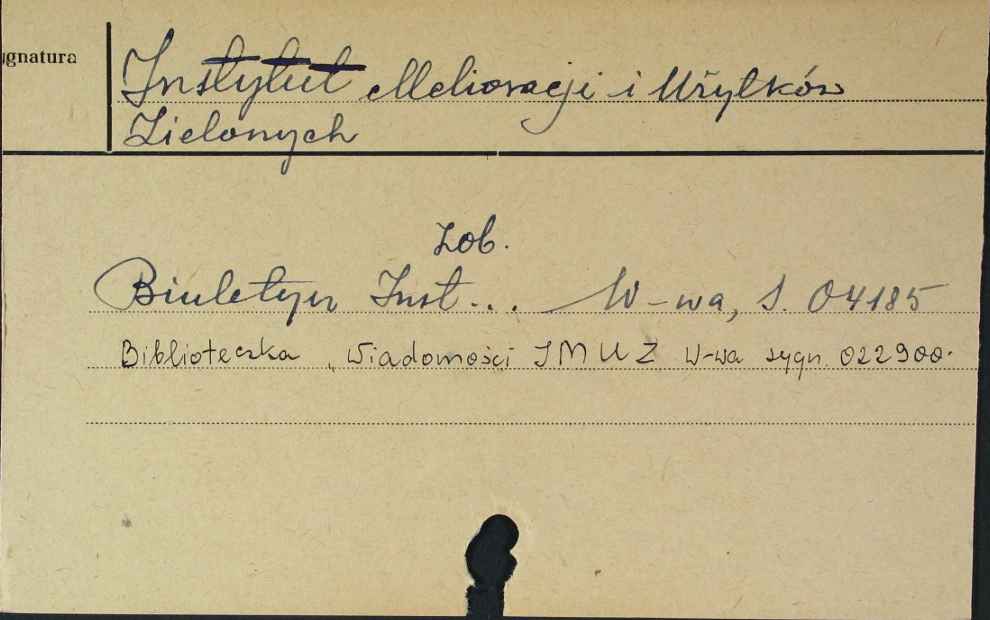 ygnatura
Instytut Melioracji i Użytków
Zielonych
Zob.
Biuletyn Inst... W-wa, S. 04185
Biblioteczka „Wiadomości IMUZ W-wa sygn. 022900.